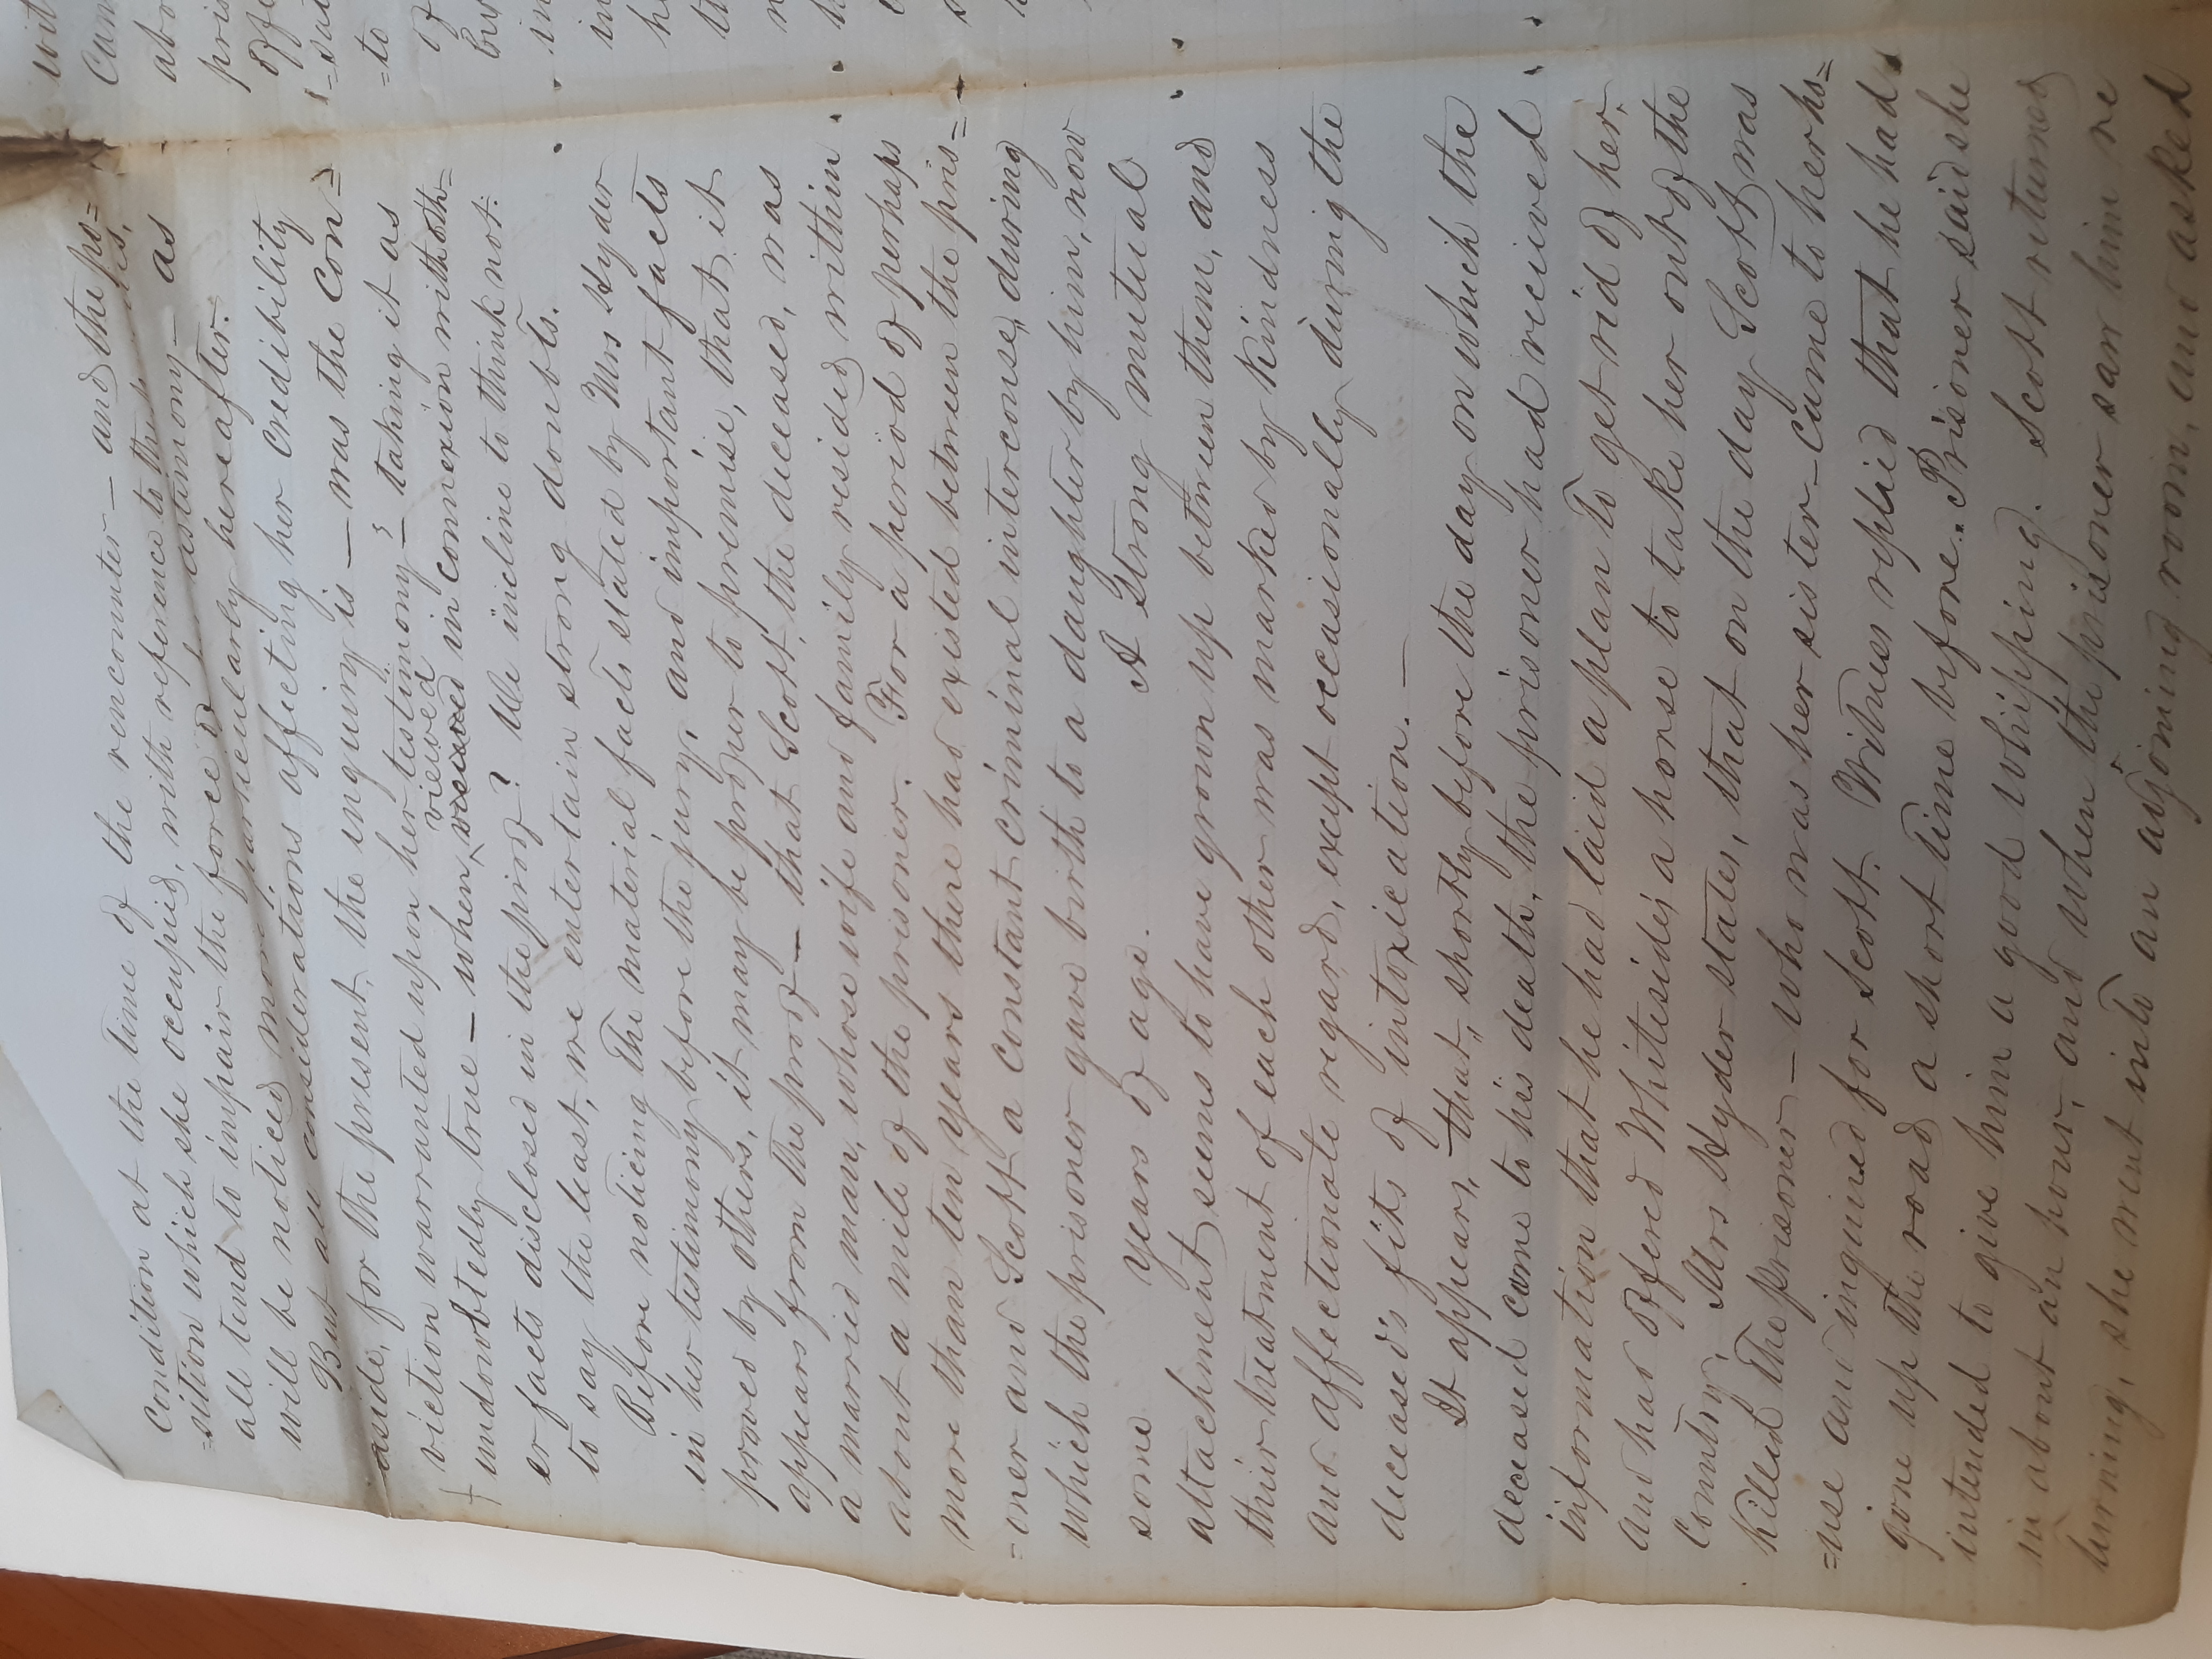 condition at the time of the rencounter — and the po=
=sition which she occupied, with reference to the
all tend to impair the force of testimony — as
will be noticed more particularly hereafter.
But all considerations affecting her credibility
aside, for the present, the inquiry is — was the con=
viction warranted upon her testimony? — taking it as
undowbtedly true — when viewed in connexion with oth=
er facts disclosed in the proof? We incline to think not:
to say the least, we entertain strong doubts.
Before noticing the material facts stated by Mrs Hyder
in her testimony before the jury, and important facts
proved by others, it may be proper to premise, that it
appears from the proof — that Scott, the deceased, was
a married man, whose wife and family resided within
about a mile of the prisoner. For a period of perhaps
more than ten years there had existed between the pris=
=oner and Scott a constant criminal interconse, during
which the prisoner gave birth to a daughter by him, now
some years of age. A strong mutual
attachment seems to have grown up between them, and
their treatment of each other was marked by kindness
and affectionate regard, except occasionally during the
deceased's fits of intoxication. —
It appears, that, shortly before the day on which the
deceased came to his death, the prisoner had recieved
information that he had laid a plan to get rid of her,
and had offered Whitesides a horse to take her out of the
Country. Mrs Hyder states, that on the day Scott was
killed the prisoner — who was her sister — came to her ho=
=use and inquired for Scott. Witness replied that he had
gone up the road a short time before. Prisoner said she
intended to give him a good whipping. Scott returned
in about an hour, and when the prisoner saw him re
turning, she went into an adjoining room, and asked